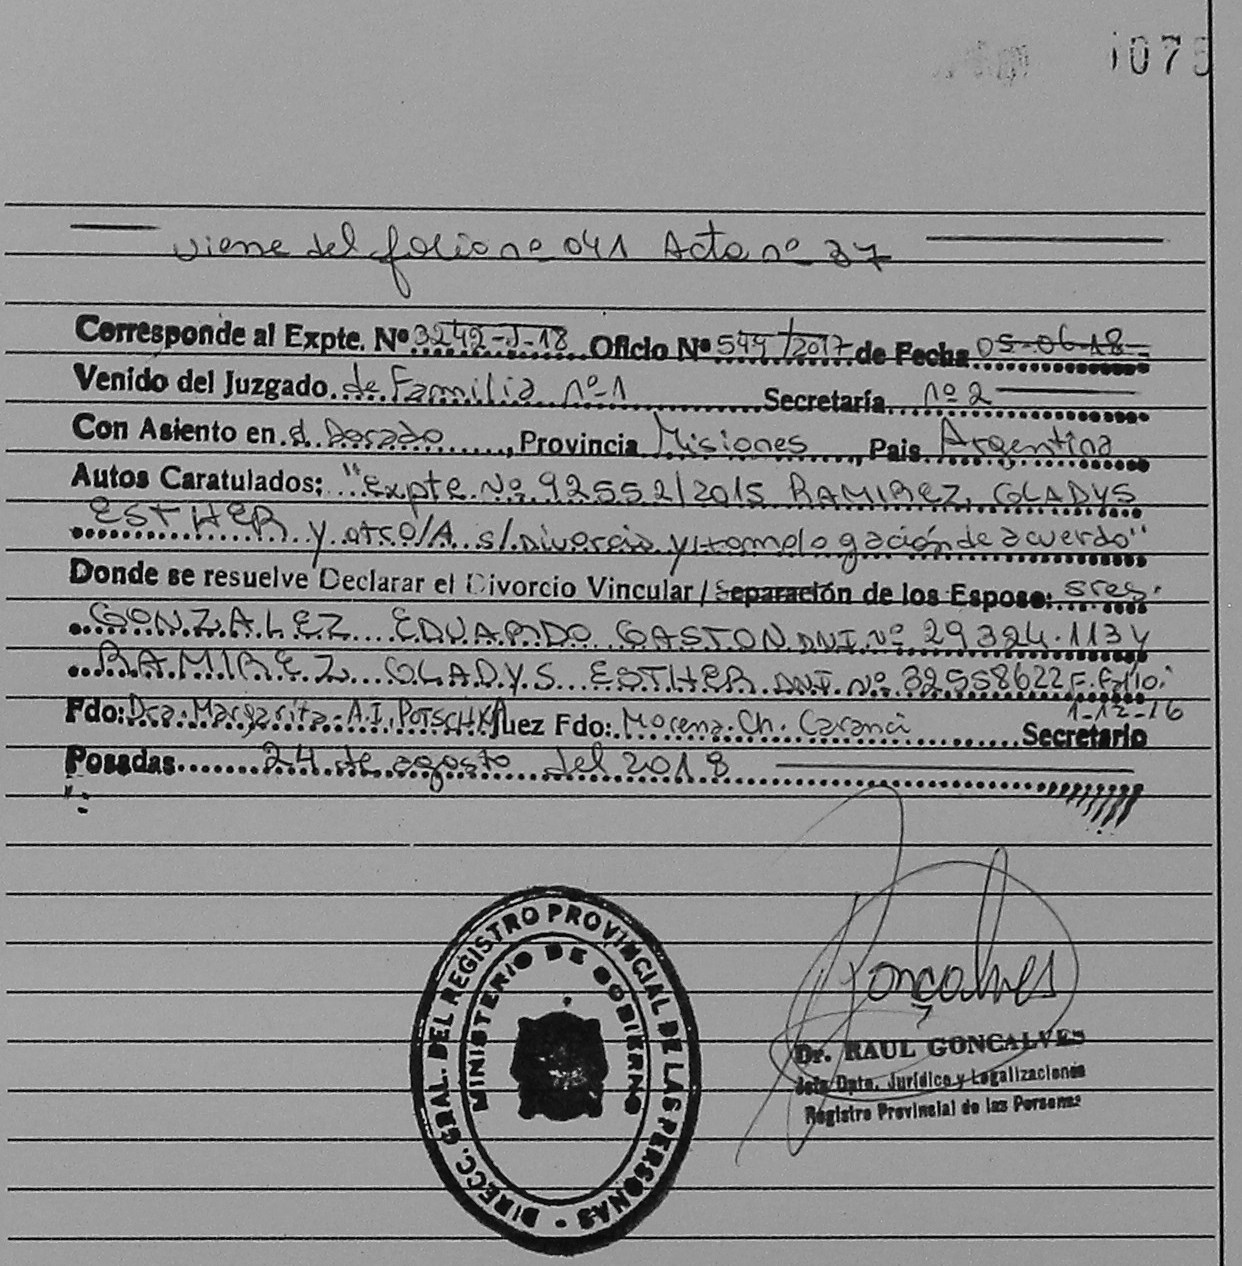 107
viene del folio nº 041 Acta nº 37
Corresponde al Expte. Nº 3242-J-18 Oficio Nº 544/2017 de Fecha 05-06-18-
Venido del Juzgado de Familia nº-1 Secretaría nº 2
Con Asiento en el Dorado, Provincia Misiones, Pais Argentina
Autos Caratulados: "Expte Nº 92552/2015 RAMIREZ, GLADYS
ESTHER y otro/A s/ Divorcio y Homologación de acuerdo"
Donde se resuelve Declarar el Divorcio Vincular / Separación de los Esposo: sres.
GONZALEZ EDUARDO GASTON DNI. Nº 29324.113 y
RAMIREZ GLADYS ESTHER DNI. Nº 32558622 F. Fallo:
1-12-16
Fdo: Dra. Margarita A.I. POTSCHKA Juez Fdo: Morena Ch. Caranci Secretario
Posadas 24 de agosto del 2018
Goncalves
Dr. RAUL GONCALVES
Jefe Dpto. Jurídico y Legalizaciones
Registro Provincial de las Personas
DIRECC. GRAL. DEL REGISTRO PROVINCIAL DE LAS PERSONAS
MINISTERIO DE GOBIERNO